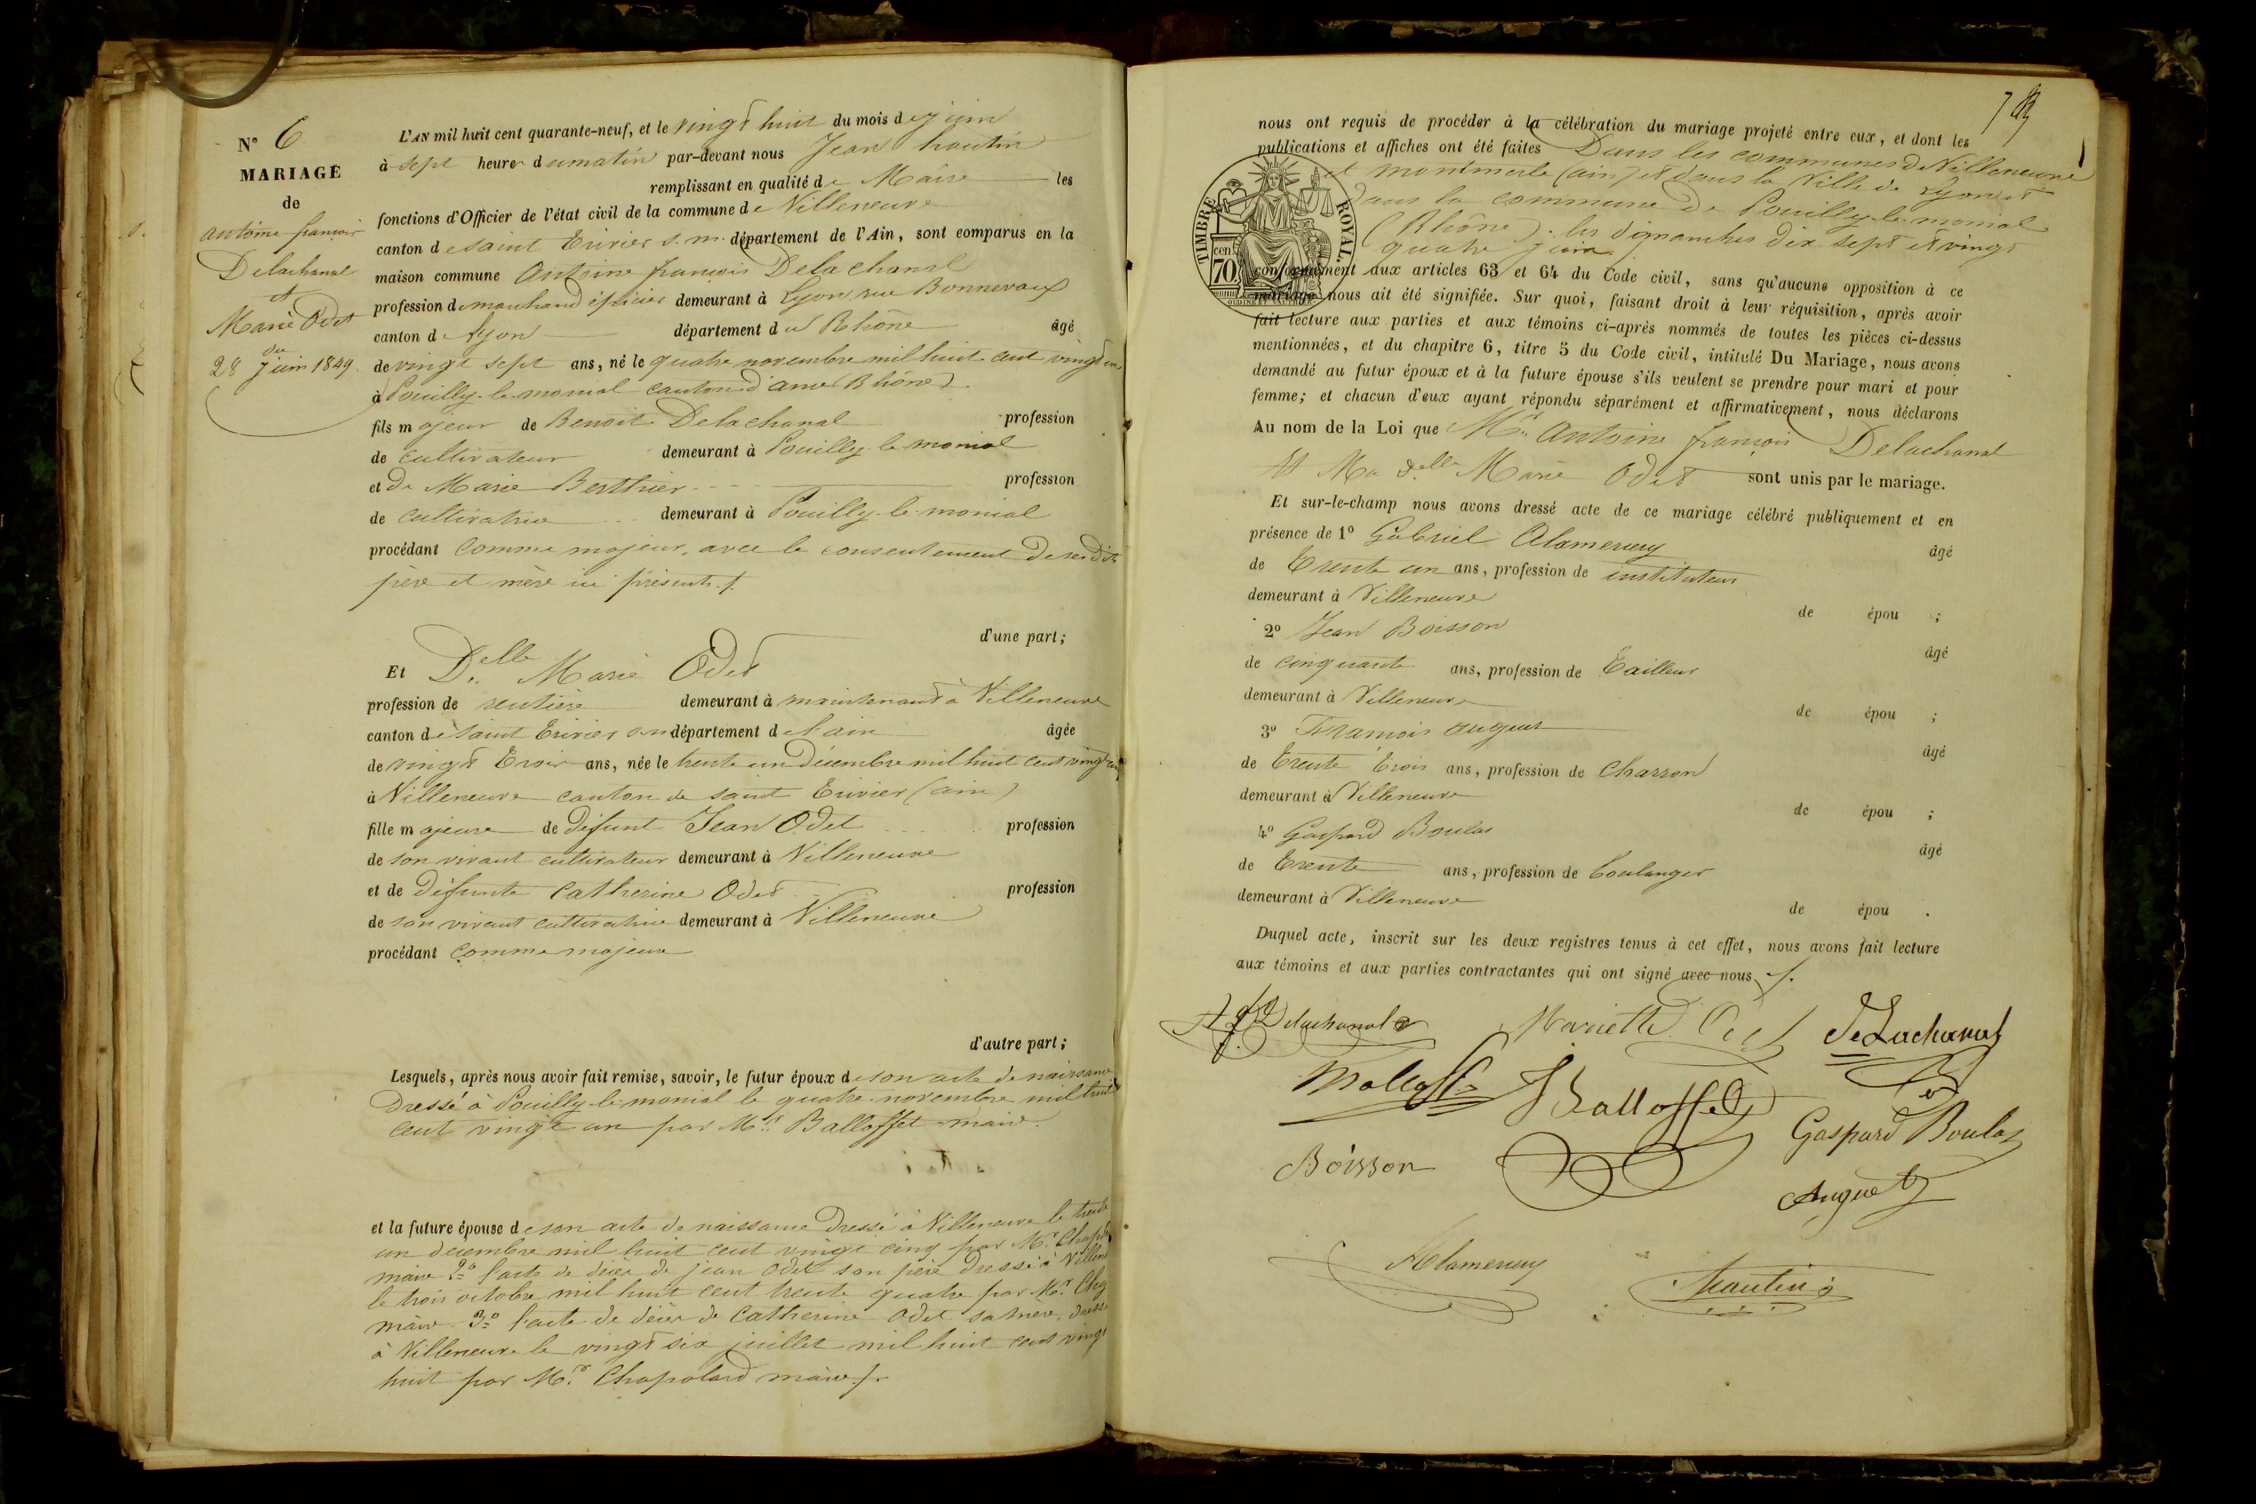 N° 6
MARIAGE
de
antoine françois
Delachanal
et
Marie Odet
du
28 juin 1849.
L'AN mil huit cent quarante-neuf, et le vingt huit du mois de juin
à sept heures du matin par-devant nous Jean hautin
remplissant en qualité de Maire les
fonctions d'Officier de l'état civil de la commune de Villeneuve
canton de saint Trivier s. m. département de l'Ain, sont comparus en la
maison commune Antoine françois Delachanal
profession de marchand épicier demeurant à Lyon rue Bonnevaux
canton de Lyon département du Rhône âgé
de vingt sept ans, né le quatre novembre mil huit cent vingt un
à Pouilly-le-monial canton d'anse (Rhône).
fils majeur de Benoît Delachanal profession
de cultivateur demeurant à Pouilly-le-monial
et de Marie Berthier profession
de cultivatrice demeurant à Pouilly-le-monial
procédant comme majeur, avec le consentement de ses dits
père et mère ici présents ./.
d'une part;
Et Delle Marie Odet
profession de rentière demeurant à maintenant à Villeneuve
canton de saint Trivier s. m. département de l'ain âgée
de vingt trois ans, née le trente un Décembre mil huit cent vingt cinq
à Villeneuve canton de saint Trivier (ain)
fille majeure de défunt Jean Odet profession
de son vivant cultivateur demeurant à Villeneuve
et de défunte Catherine Odet profession
de son vivant cultivatrice demeurant à Villeneuve
procédant comme majeure
d'autre part;
Lesquels, après nous avoir fait remise, savoir, le futur époux de son acte de naissance
Dressé à Pouilly-le-monial le quatre novembre mil huit
cent vingt un par Mr. Balloffet maire.
et la future épouse de son acte de naissance Dressé à Villeneuve le trente
un décembre mil huit cent vingt cinq par Mr. Chapo
maire 2° l'acte de décès de jean Odet son père Dressé à Villene
le trois octobre mil huit cent trente quatre par Mr.
maire 3° l'acte de décès de Catherine Odet sa mère, dressé
à Villeneuve le vingt six juillet mil huit cent vingt
huit par Mr. Chapolard maire ./.
nous ont requis de procéder à la célébration du mariage projeté entre eux, et dont les
publications et affiches ont été faites Dans les communes de Villeneuve
et montmerle (ain) et dans la Ville de Lyon et
Dans la commune de Pouilly-le-monial
(Rhône). les dimanches dix sept et vingt
quatre juin
TIMBRE ROYAL.
70 cen
conformément aux articles 63 et 64 du Code civil, sans qu'aucune opposition à ce
mariage nous ait été signifiée. Sur quoi, faisant droit à leur réquisition, après avoir
fait lecture aux parties et aux témoins ci-après nommés de toutes les pièces ci-dessus
mentionnées, et du chapitre 6, titre 5 du Code civil, intitulé Du Mariage, nous avons
demandé au futur époux et à la future épouse s'ils veulent se prendre pour mari et pour
femme; et chacun d'eux ayant répondu séparément et affirmativement, nous déclarons
Au nom de la Loi que Mr. Antoine françois Delachanal
Et Ma delle Marie Odet sont unis par le mariage.
Et sur-le-champ nous avons dressé acte de ce mariage célébré publiquement et en
présence de 1° Gabriel Alamercery âgé
de Trente un ans, profession de instituteur
demeurant à Villeneuve de épou ;
2° Jean Boisson âgé
de cinquante ans, profession de Tailleur
demeurant à Villeneuve de épou ;
3° François auguet âgé
de Trente Trois ans, profession de Charron
demeurant à Villeneuve de épou ;
4° Gaspard Boulas âgé
de Trente ans, profession de boulanger
demeurant à Villeneuve de épou .
Duquel acte, inscrit sur les deux registres tenus à cet effet, nous avons fait lecture
aux témoins et aux parties contractantes qui ont signé avec nous ./.
Delachanal Mariette Odet DeLachanal
Balloffet
Gaspard Boulas
Boisson
Auguet
Alamercery
Hautin